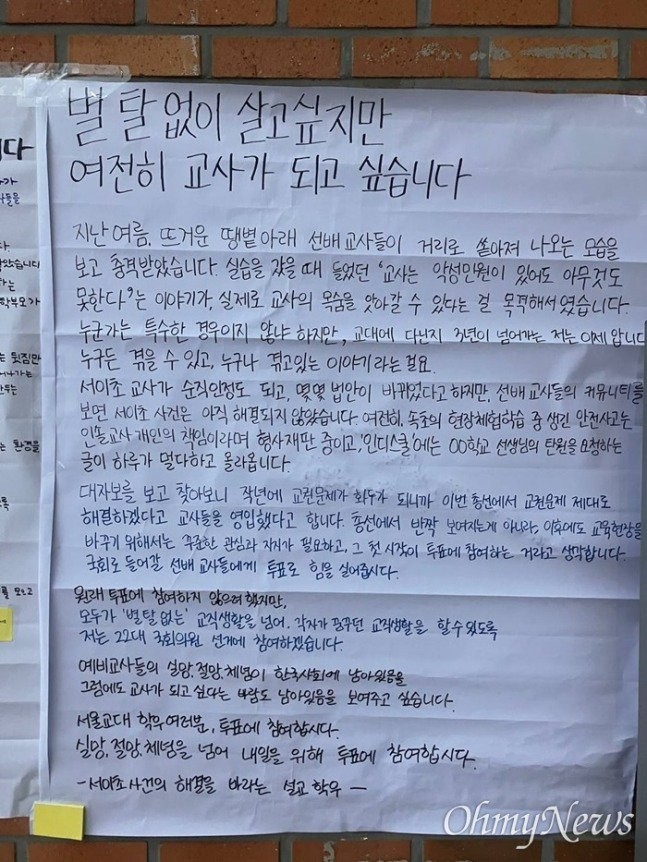 별 탈 없이 살고싶지만
여전히 교사가 되고 싶습니다
지난 여름, 뜨거운 땡볕 아래 선배교사들이 거리로 쏟아져 나오는 모습을
보고 충격받았습니다. 실습을 갔을 때 들었던 '교사는 악성민원이 있어도 아무것도
못한다'는 이야기가, 실제로 교사의 목숨을 앗아갈 수 있다는 걸 목격해서였습니다.
누군가는 특수한 경우이지 않냐 하지만, 교대에 다닌지 3년이 넘어가는 저는 이제 압니다
누구든 겪을 수 있고, 누구나 겪고있는 이야기라는 걸요.
서이초 교사가 순직인정도 되고, 몇몇 법안이 바뀌었다고 하지만, 선배 교사들의 커뮤니티를
보면 서이초 사건은 아직 해결되지 않았습니다. 여전히, 속초의 현장체험학습 중 생긴 안전사고는
인솔교사 개인의 책임이라며 형사재판 중이고, '인디스쿨'에는 OO학교 선생님의 탄원을 요청하는
글이 하루가 멀다하고 올라옵니다.
대자보를 보고 찾아보니 작년에 교권문제가 화두가 되니까 이번 총선에서 교권문제 제대로
해결하겠다고 교사들을 영입했다고 합니다. 총선에서 반짝 보여지는게 아니라, 이후에도 교육현장을
바꾸기 위해서는 꾸준한 관심과 지지가 필요하고, 그 첫 시작이 투표에 참여하는 거라고 생각합니다.
국회로 들어갈 선배 교사들에게 투표로 힘을 실어줍시다.
원래 투표에 참여하지 않으려 했지만,
모두가 '별 탈 없는' 교직생활을 넘어, 각자가 꿈꾸던 교직생활을 할 수 있도록
저는 22대 국회의원 선거에 참여하겠습니다.
예비교사들의 실망,절망,체념이 한국사회에 남아있음을
그럼에도 교사가 되고 싶다는 바람도 남아있음을 보여주고 싶습니다.
서울교대 학우여러분, 투표에 참여합시다.
실망, 절망, 체념을 넘어 내일을 위해 투표에 참여합시다.
- 서이초 사건의 해결을 바라는 설교 학우 -
OhmyNews